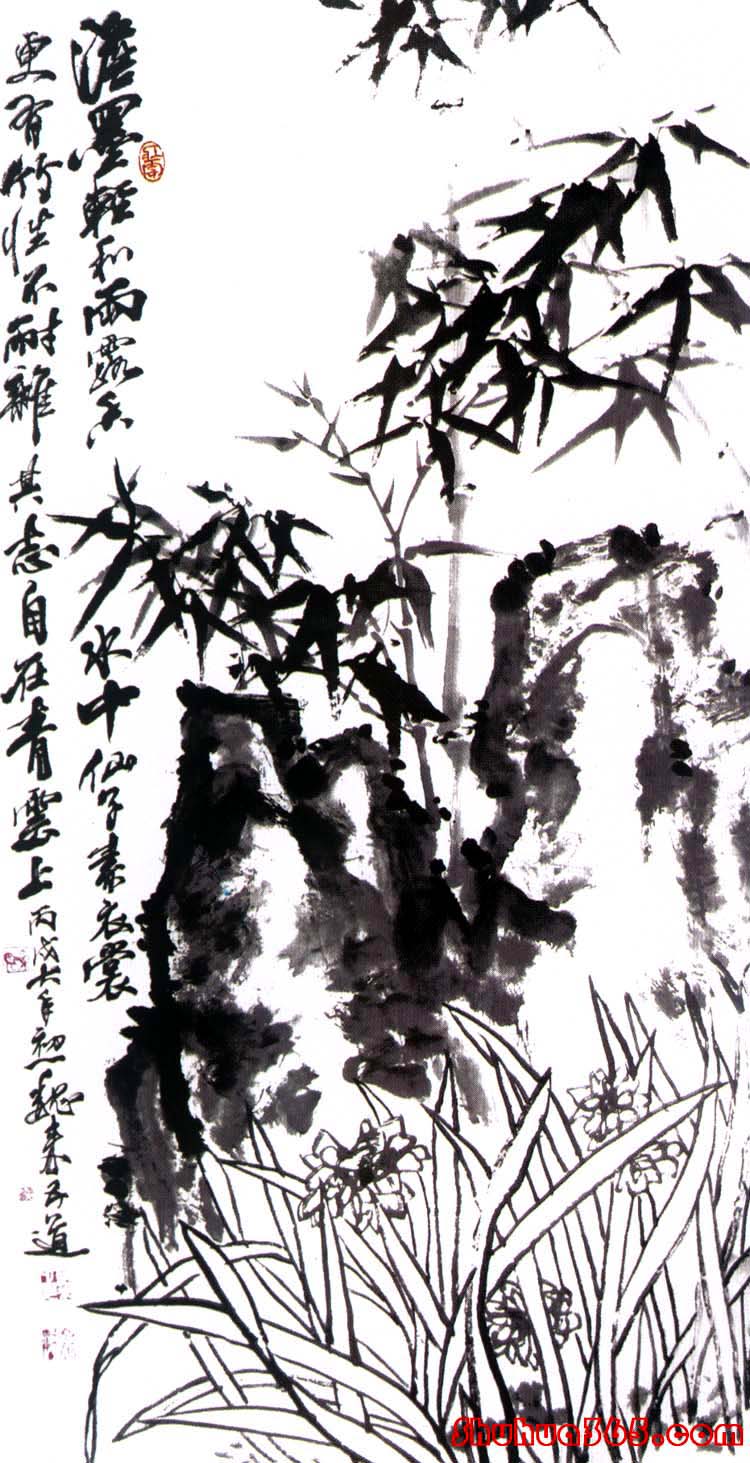 淡墨輕和雨露香 水中仙子素衣裳
更有竹性不耐雜 其志自在青雲上 丙戌大年初一魏來
Shuhua365.com